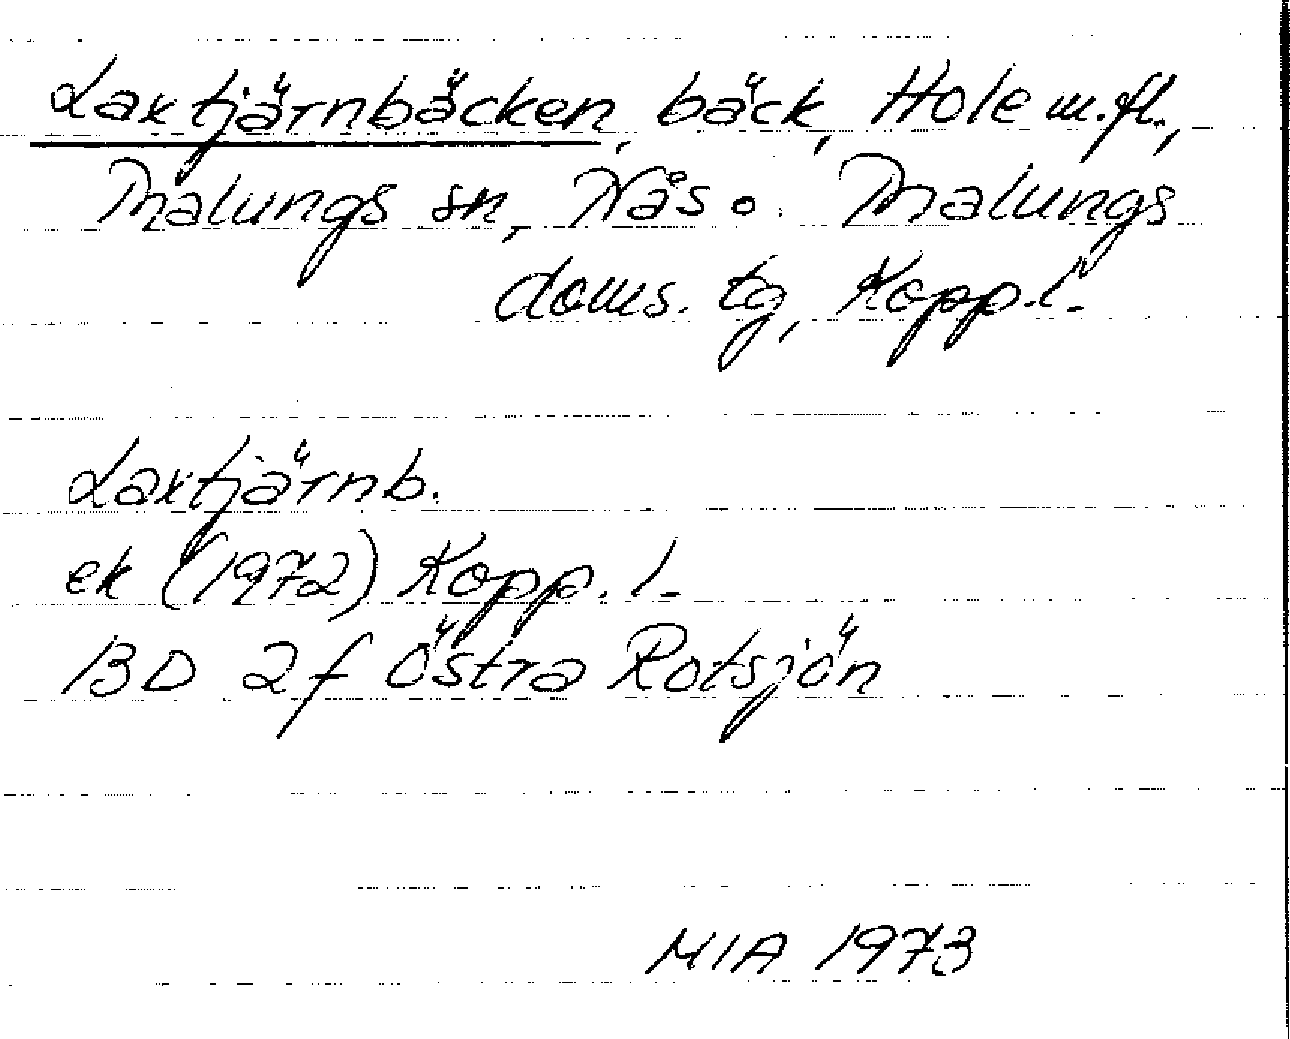 Laxtjärnbäcken, bäck, Hole m.fl.,
Malungs sn, Nås o. Malungs
doms. tg, Kopp. l.
Laxtjärnb.
ek (1972) Kopp. l.
13D 2f Östra Rotsjön
MIA 1973